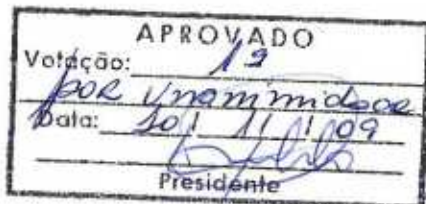 APROVADO
Votação: 1ª
por unanimidade
Data: 10 / 11 / 09
Presidente